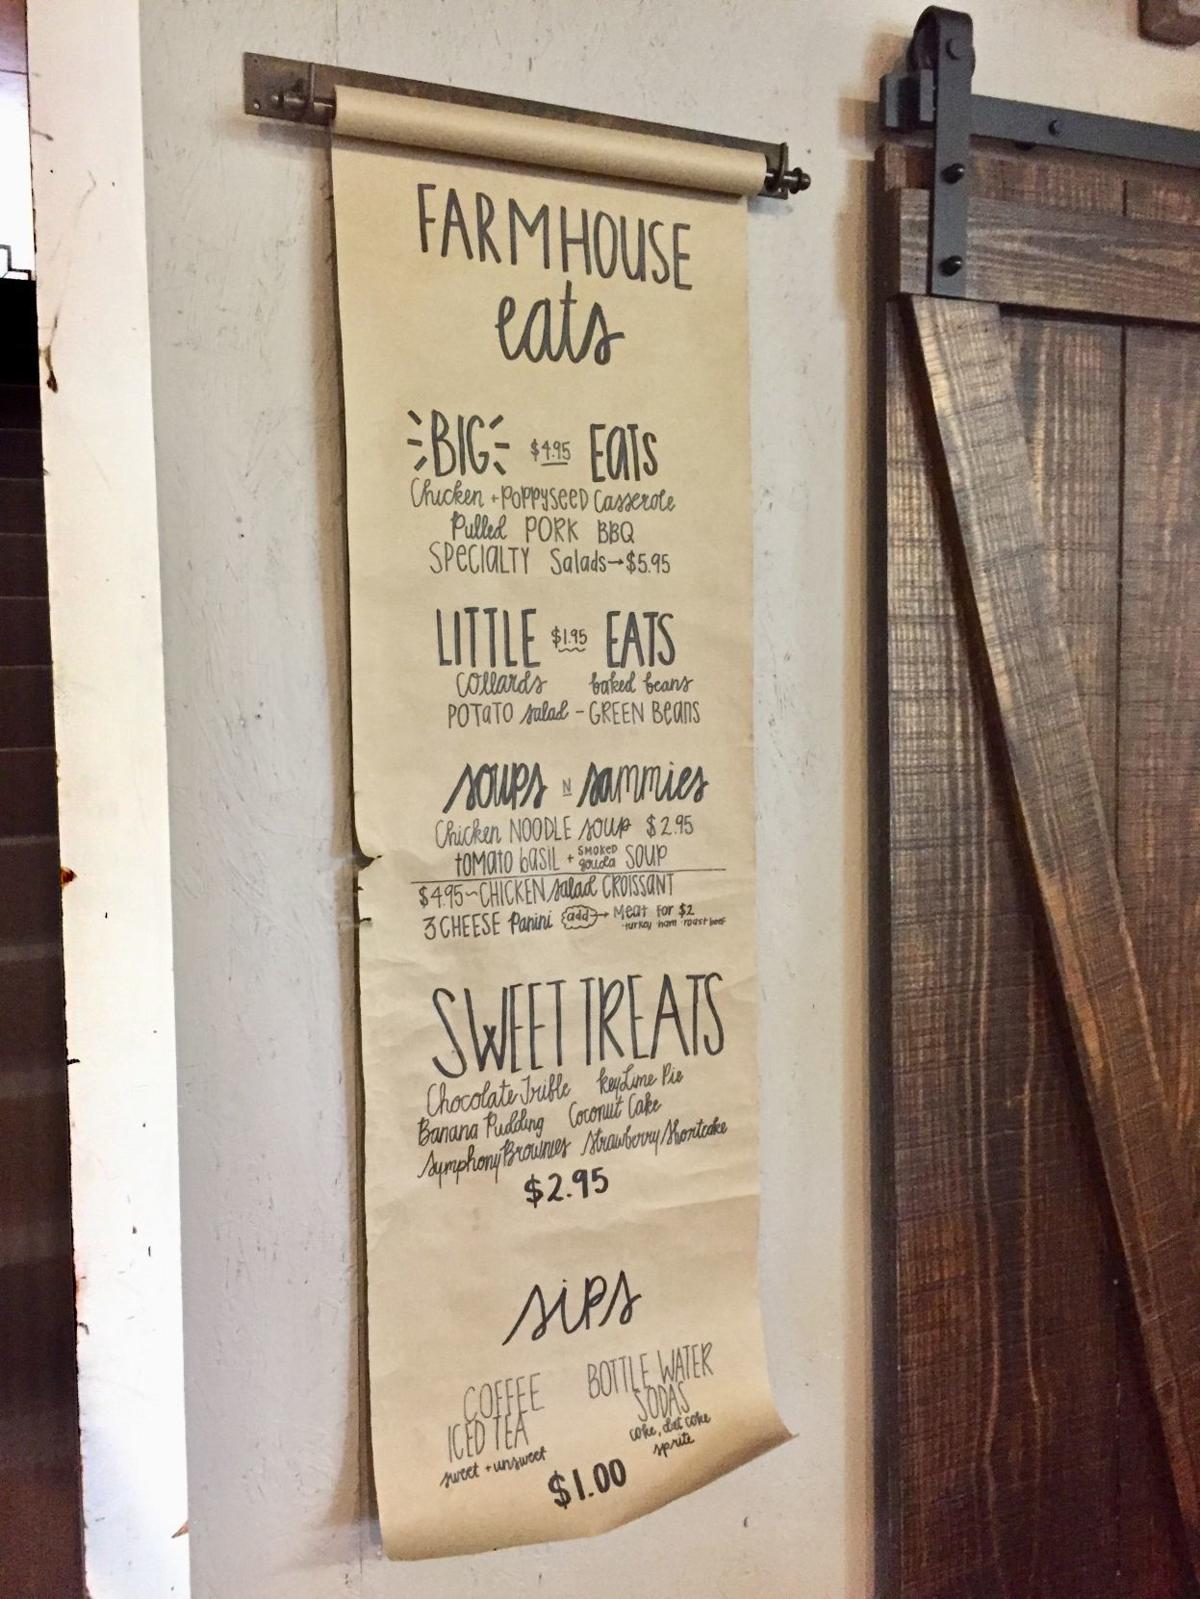 FARMHOUSE
eats
BIG $4.95 EATS
Chicken + POPPYSEED Casserole
Pulled PORK BBQ
SPECIALTY Salads→$5.95
LITTLE $1.95 EATS
collards baked beans
POTATO salad - GREEN Beans
soups N sammies
Chicken NOODLE soup $2.95
tomato basil + SMOKED gouda SOUP
$4.95~CHICKEN salad CROISSANT
3 CHEESE Panini add→ Meat for $2
turkey ham roast beef
SWEET TREATS
Chocolate Trifle Key Lime Pie
Banana Pudding Coconut Cake
Symphony Brownies Strawberry Shortcake
$2.95
sips
COFFEE BOTTLE WATER
ICED TEA SODAS
sweet + unsweet coke, diet coke
sprite
$1.00